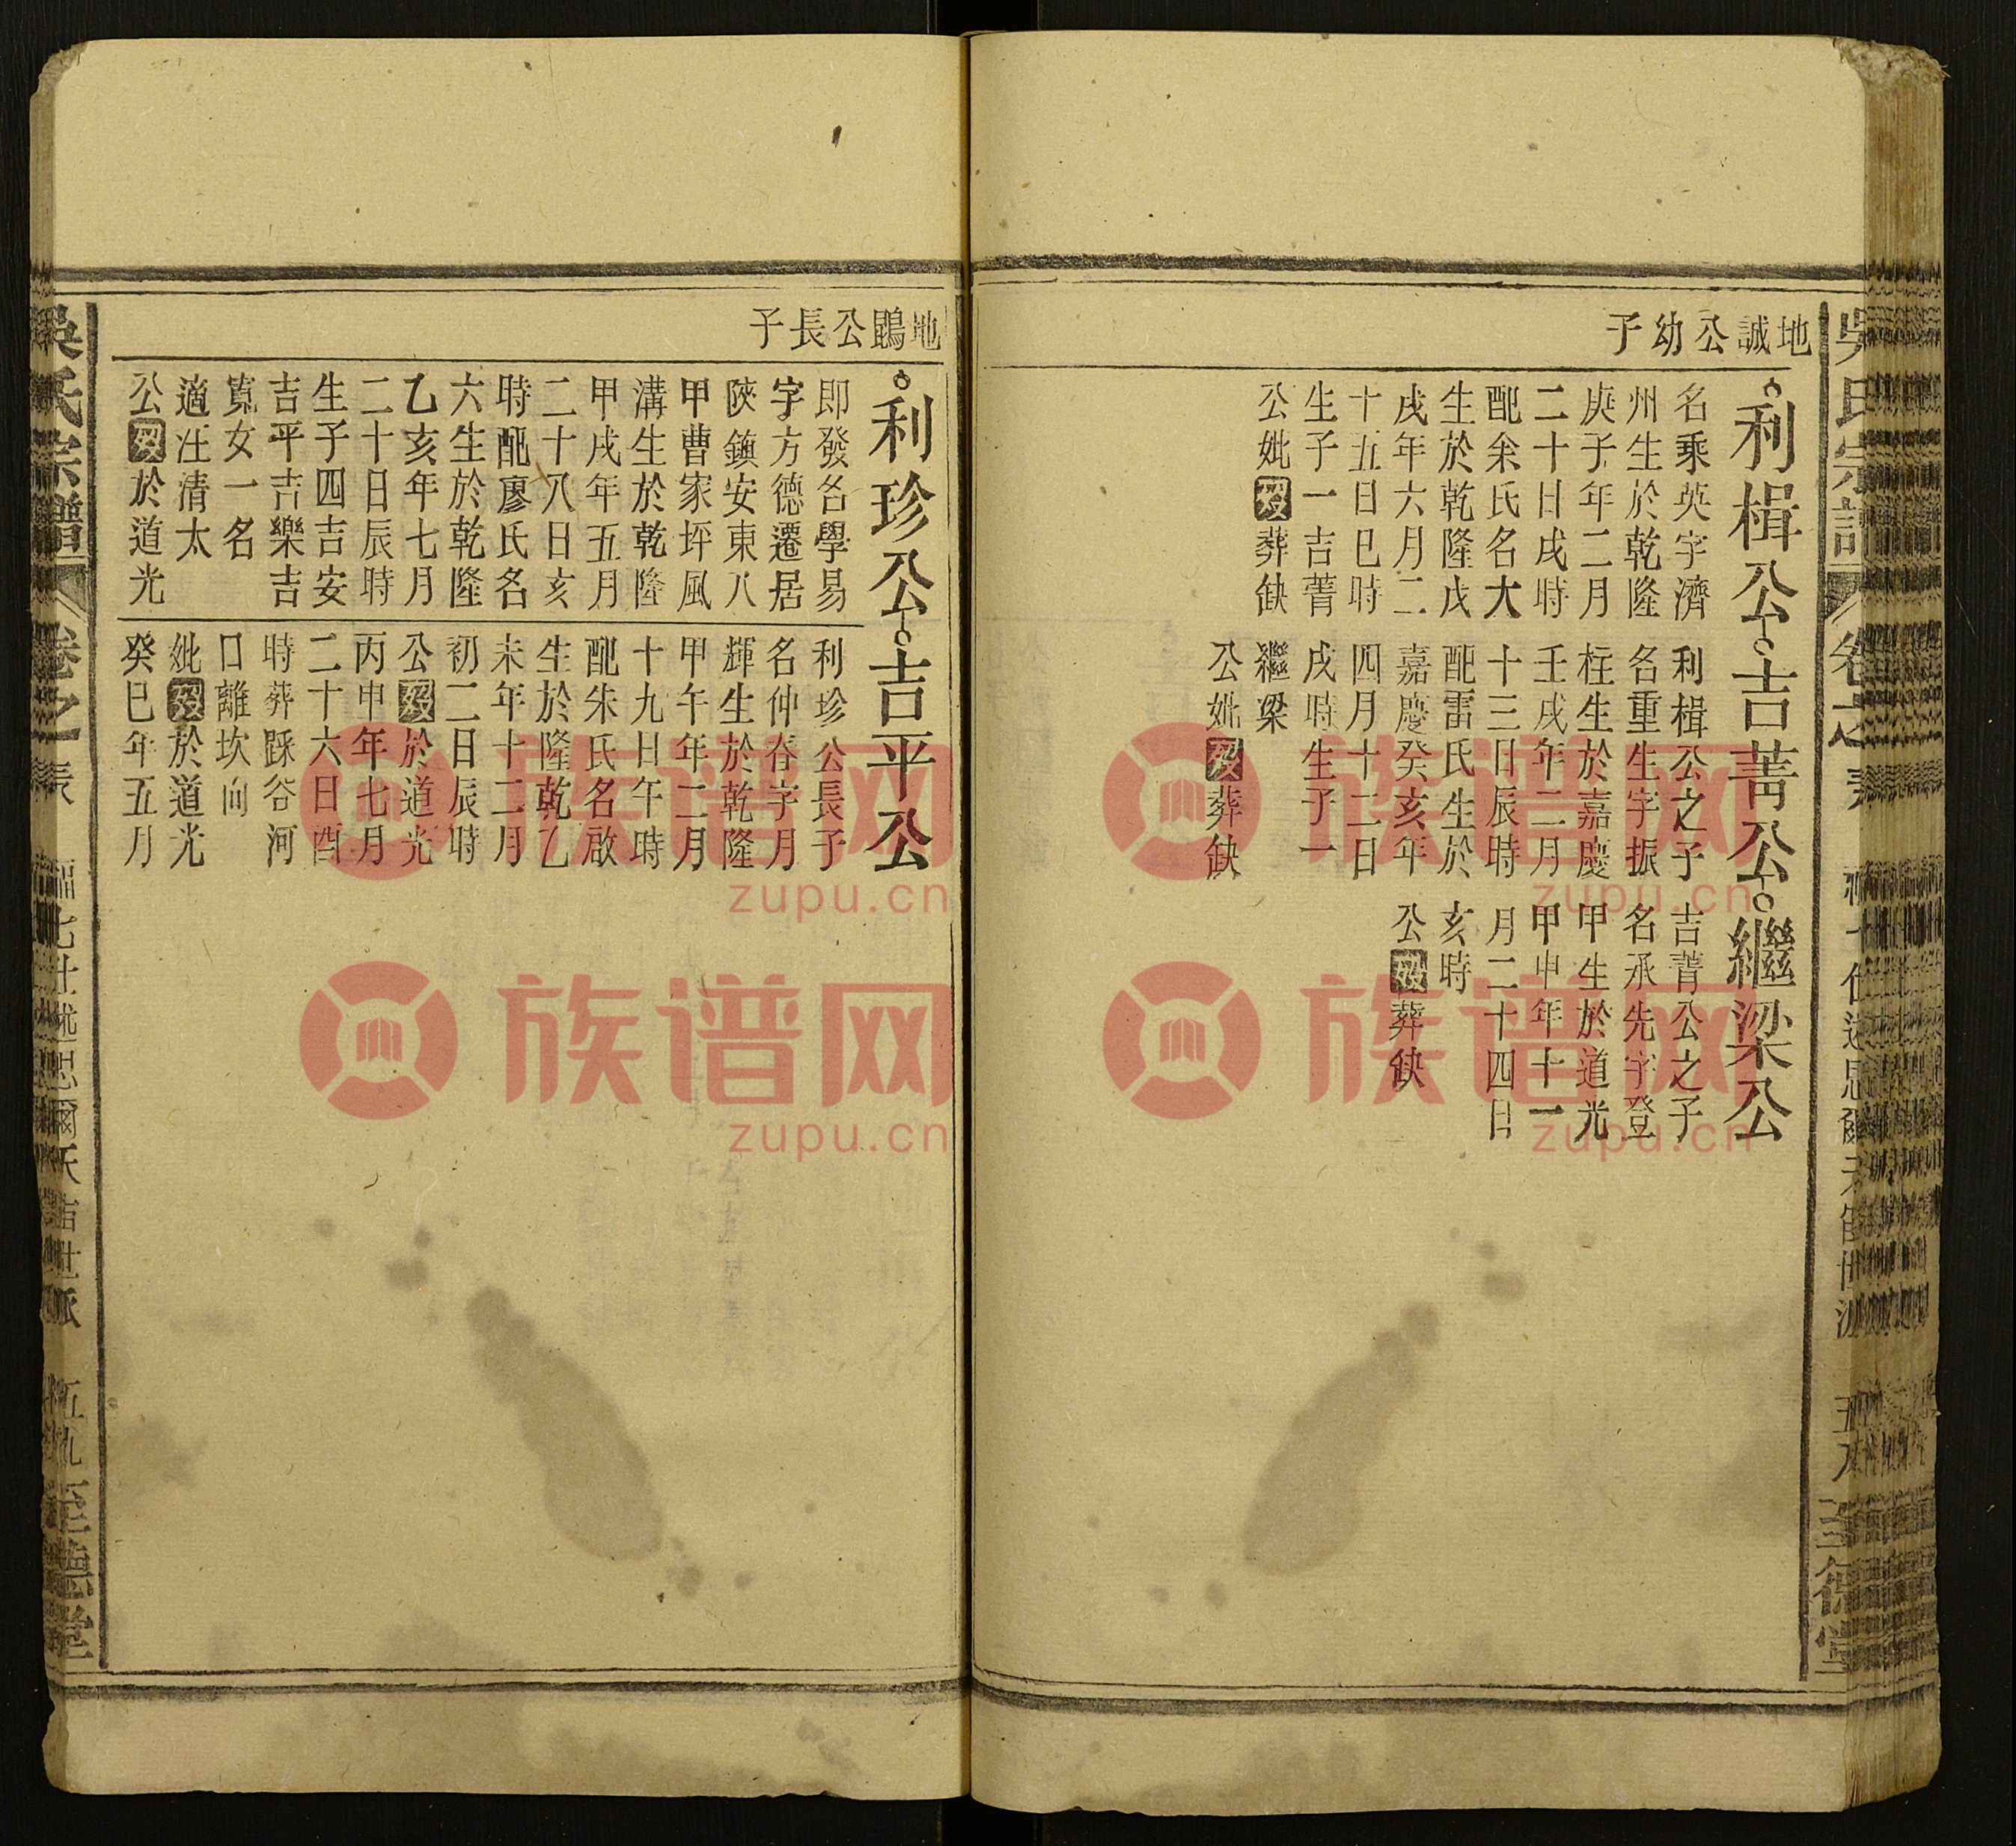 地誠公幼子
利楫公
吉菁公
繼梁公
名乗英字濟
州生於乾隆
庚子年二月
二十日戌時
配余氏名大
生於乾隆戊
戌年六月二
十五日巳時
生子一吉菁
公妣歿葬缺
利楫公之子
名重生字振
柱生於嘉慶
壬戌年二月
十三日辰時
配雷氏生於
嘉慶癸亥年
四月十二日
戌時生子一
繼梁
公妣歿葬缺
吉菁公之子
名承先字登
甲生於道光
甲申年十一
月二十四日
亥時
公歿葬缺
地鵾公長子
利珍公
吉平公
即發名學易
字方德遷居
陝鎮安東八
甲曹家坪風
溝生於乾隆
甲戌年五月
二十八日亥
時配廖氏名
六生於乾隆
乙亥年七月
二十日辰時
生子四吉安
吉平吉樂吉
寬女一名
適汪清太
公歿於道光
利珍公長子
名仲春字月
輝生於乾隆
甲午年二月
十九日午時
配朱氏名啟
生於隆乾乙
未年十二月
初二日辰時
公歿於道光
丙申年七月
二十六日酉
時葬踩谷河
口離坎向
妣歿於道光
癸巳年五月
吳氏宗譜
卷之一表
至德堂
族谱网
zupu.cn
族谱网
zupu.cn
族谱网
zupu.cn
族谱网
zupu.cn